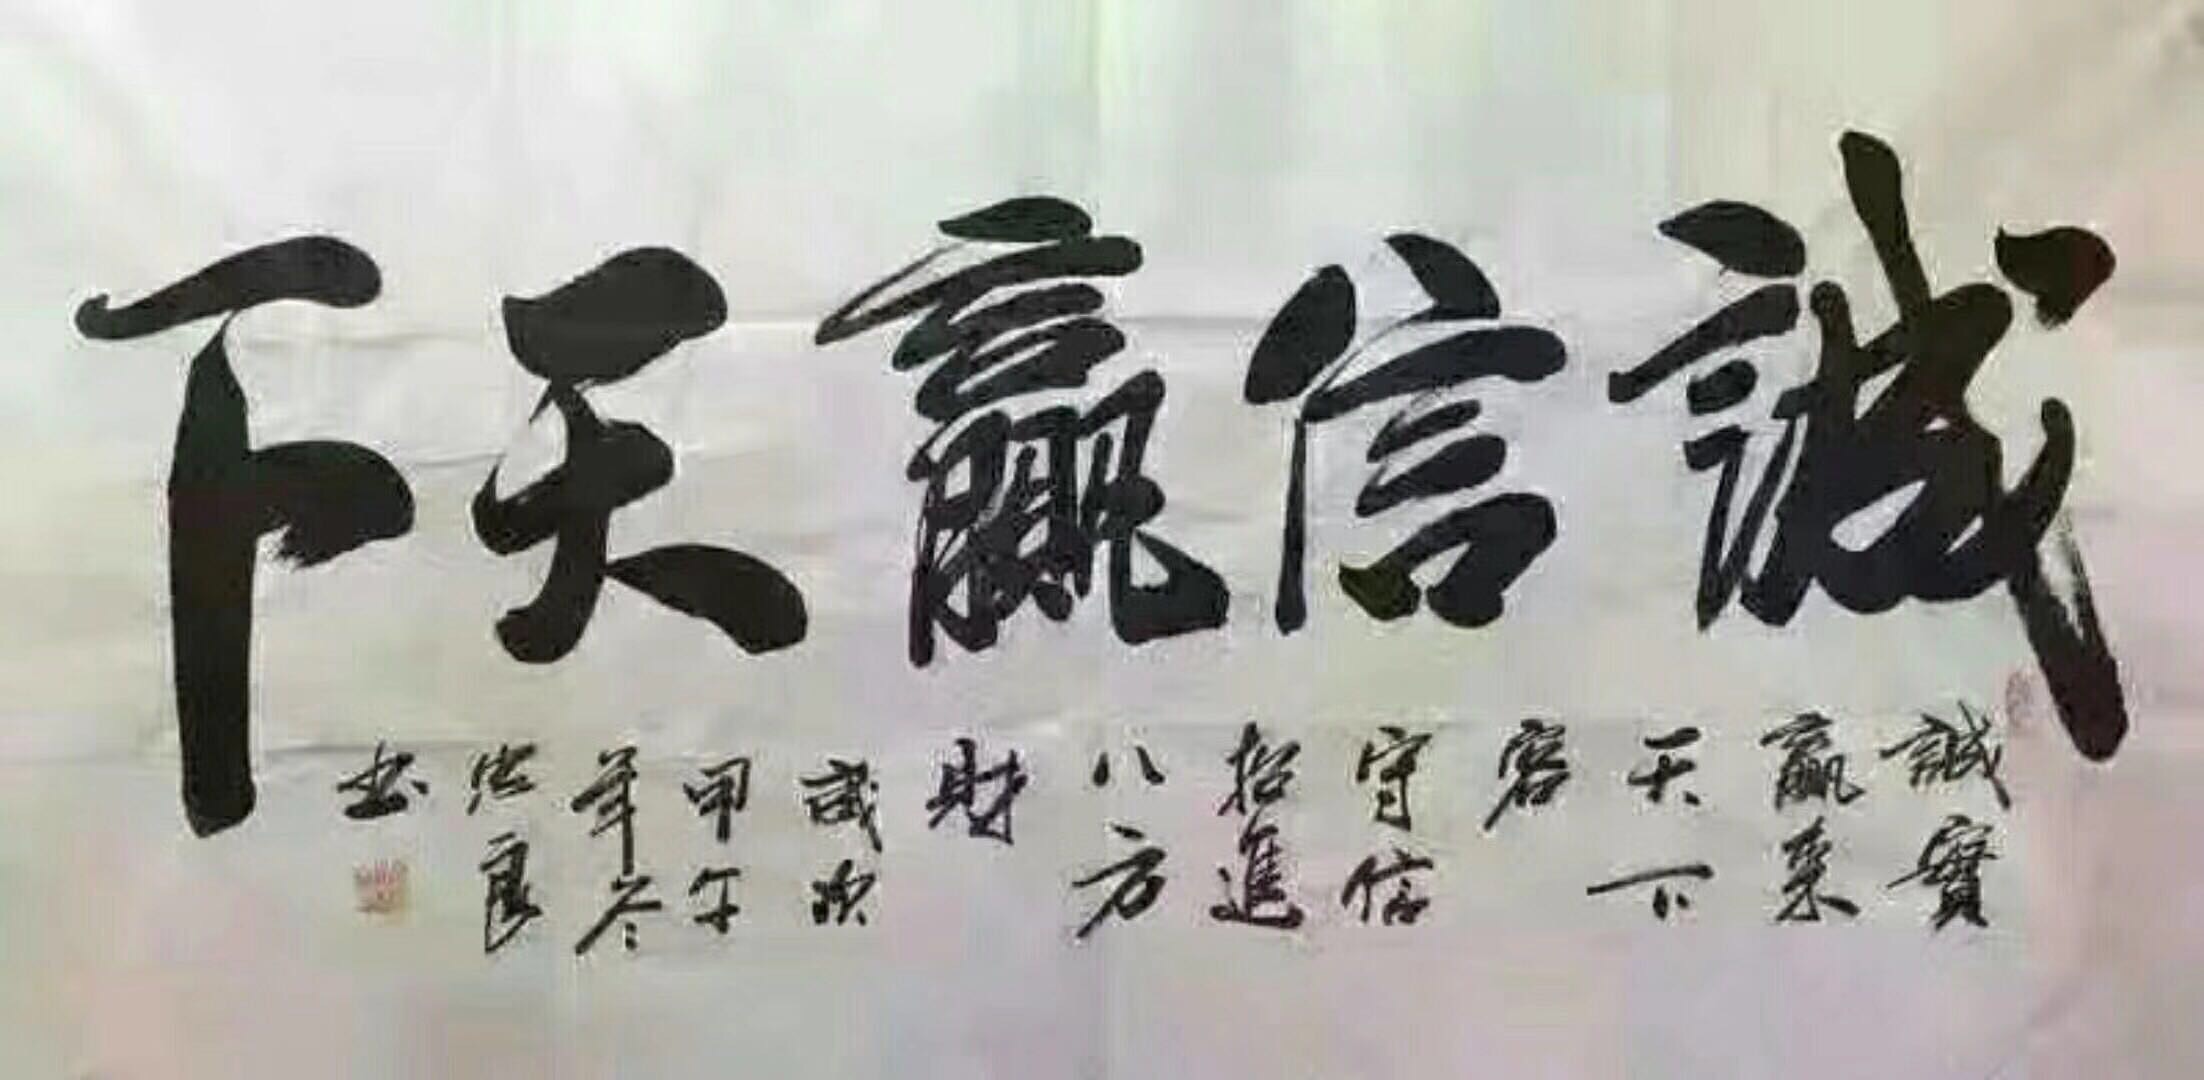 誠信贏天下
誠實
贏來
天下
客
守信
招進
八方
財
歲次
甲午
年冬
忠良
书